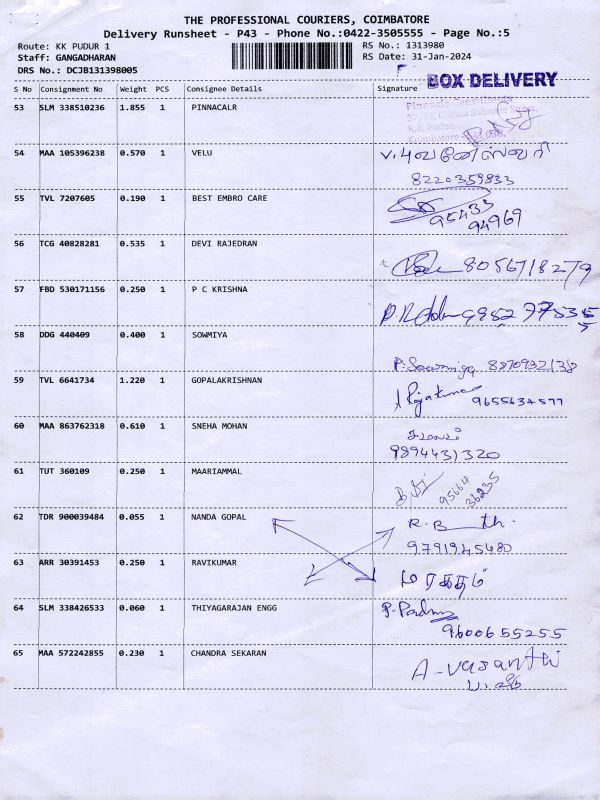 THE PROFESSIONAL COURIERS, COIMBATORE
Delivery Runsheet - P43 - Phone No.:0422-3505555 - Page No.:5
Route: KK PUDUR 1 RS No.: 1313980
Staff: GANGADHARAN RS Date: 31-Jan-2024
DRS No.: DCJB131398005
BOX DELIVERY
S No Consignment No Weight PCS Consignee Details Signature
53 SLM 338510236 1.855 1 PINNACALR
K.K. Pudur
54 MAA 105396238 0.570 1 VELU V. புவனேஸ்வரி
8220359833
55 TVL 7207605 0.190 1 BEST EMBRO CARE
95433
94969
56 TCG 40828281 0.535 1 DEVI RAJEDRAN 8056718279
57 FBD 530171156 0.250 1 P C KRISHNA
58 DDG 440409 0.400 1 SOWMIYA P. Sowmiya 8870932138
59 TVL 6641734 1.220 1 GOPALAKRISHNAN 9655634577
60 MAA 863762318 0.610 1 SNEHA MOHAN
9894431320
61 TUT 360109 0.250 1 MAARIAMMAL 95664
36235
62 TDR 900039484 0.055 1 NANDA GOPAL
9791945480
63 ARR 30391453 0.250 1 RAVIKUMAR மரகதம்
64 SLM 338426533 0.060 1 THIYAGARAJAN ENGG P. Padma
9600655255
65 MAA 572242855 0.230 1 CHANDRA SEKARAN A-vasanthi